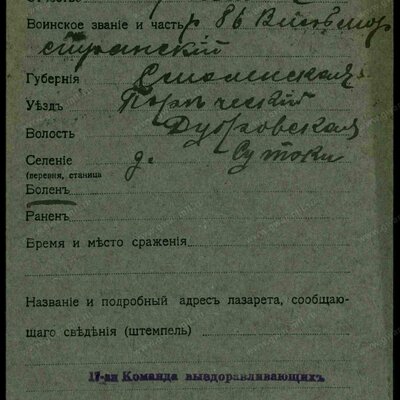 Воинское званіе и часть р 86 Вильман
странскій
Губернія Смоленская
Уѣздъ Порѣчскій
Волость Дубровская
Селеніе д. Сутоки
(деревня, станица
Боленъ
Раненъ
Время и мѣсто сраженія
Названіе и подробный адресъ лазарета, сообщаю-
щаго свѣдѣнія (штемпель)
17-ая Команда выздоравливающихъ